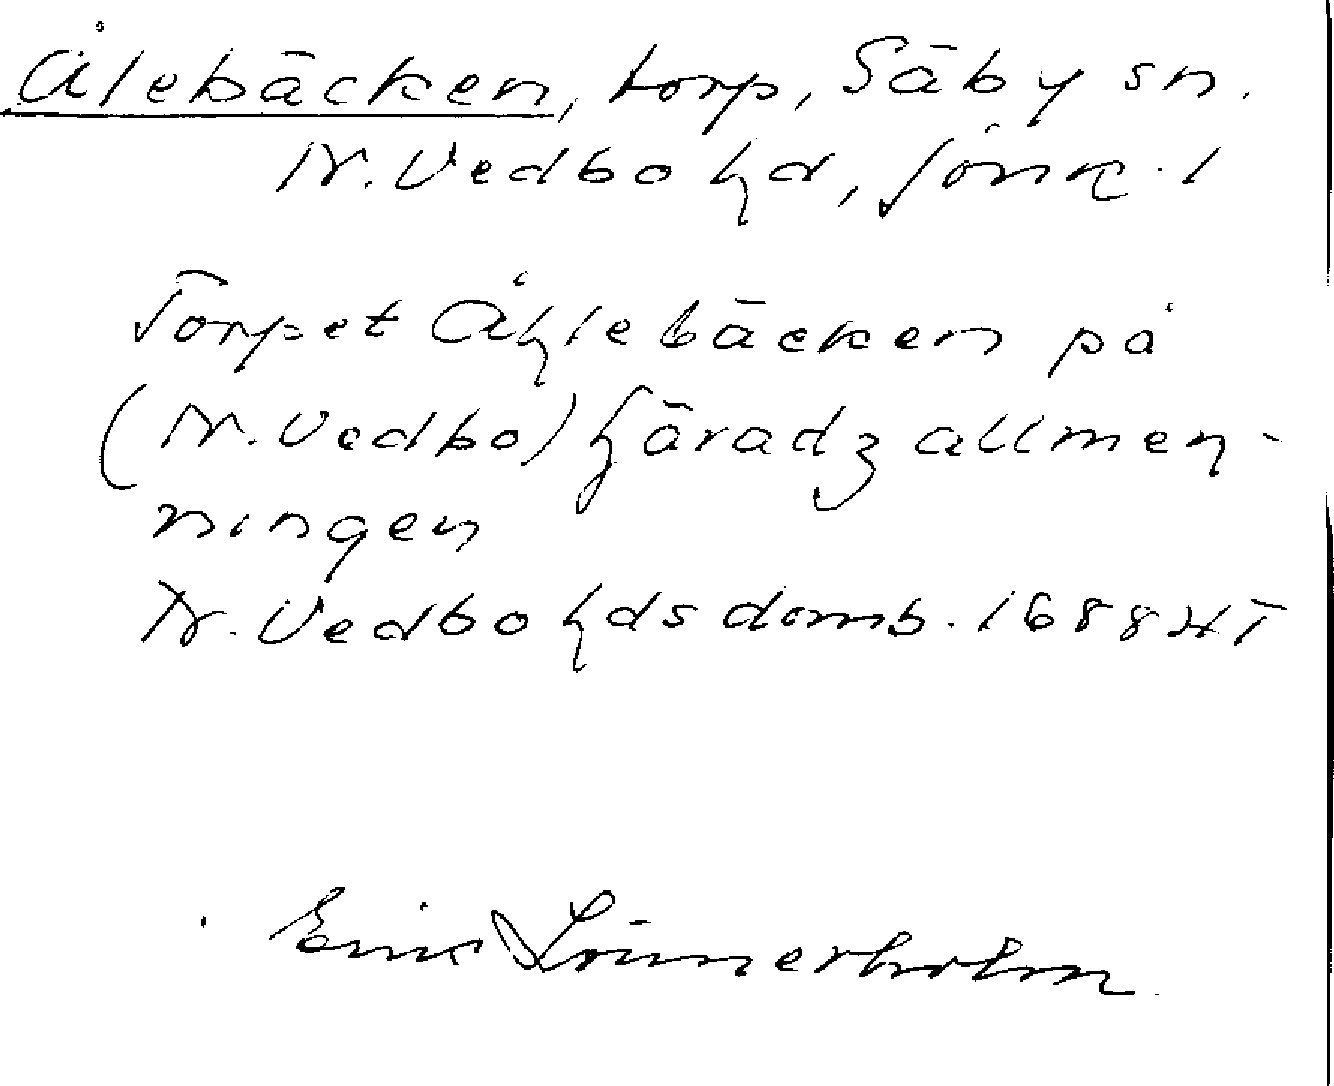 Ålebäcken, torp, Säby sn.
N. Vedbo hd, Jönk. l
Torpet Åhlebäcken på
(N. Vedbo) häradz allmen-
ningen
N. Vedbo hds domb. 1688 HT
Eric Lönnerholm